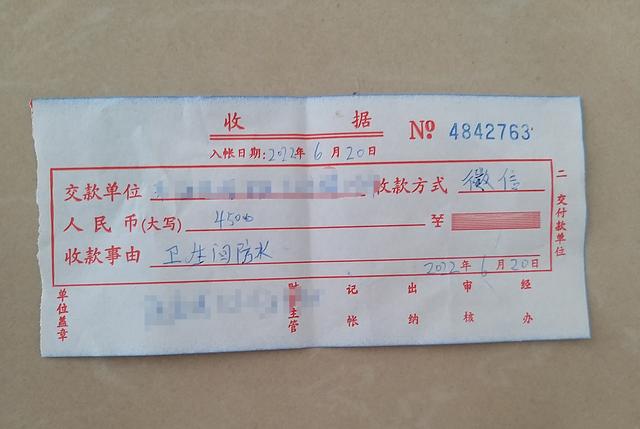 收 据
№ 4842763
入帐日期:2022年6月20日
交款单位 收款方式 微信
人民币(大写) 4500 ¥
收款事由 卫生间防水
2022年6月20日
二 交付款单位
单位盖章 财会主管 记帐 出纳 审核 经办